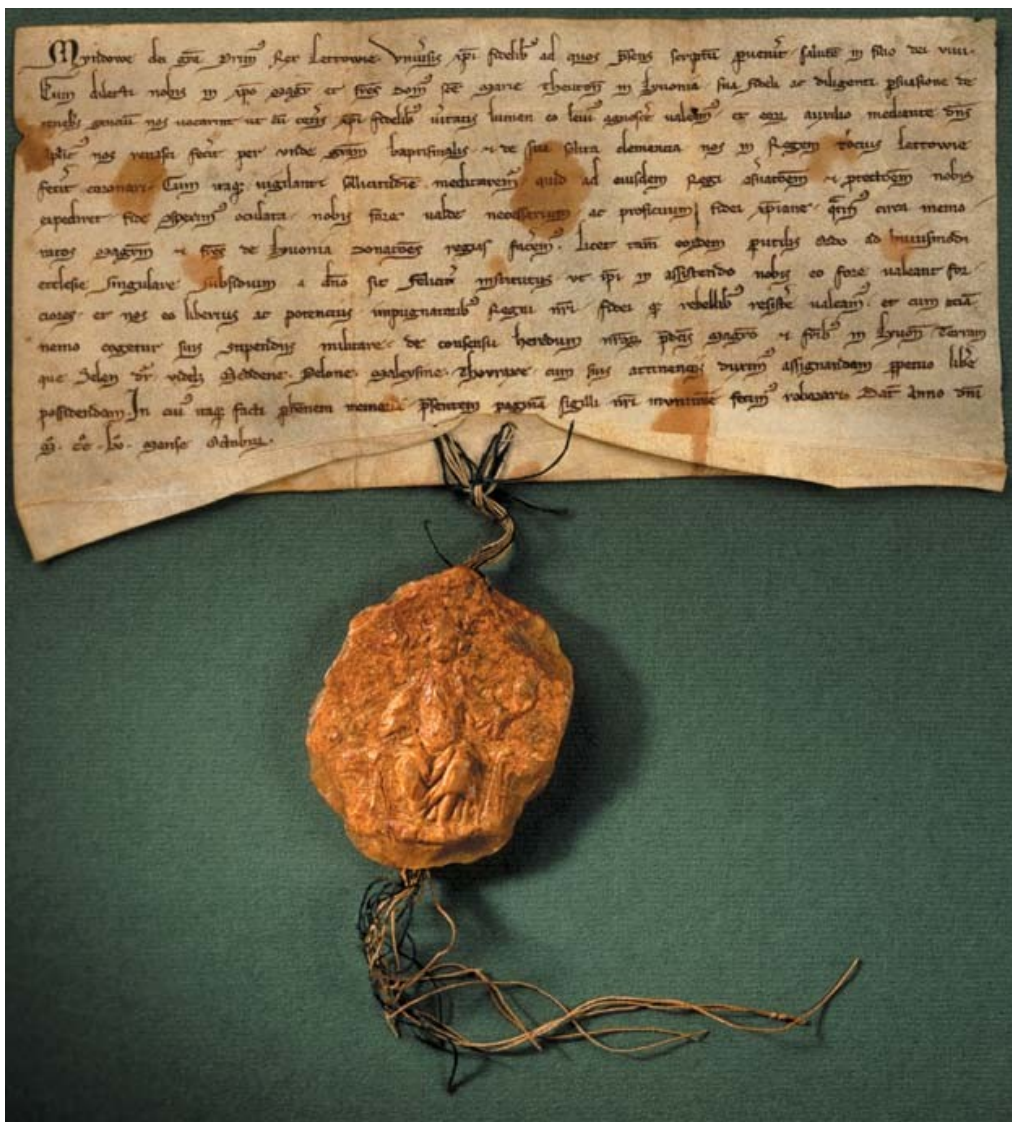 Myndowe dei gr̄a Prim⁹ Rex Lettowie. Vniu̅sis xp̄i fidelib⁹ ad quos p̄sens scriptū puen̅it salutē in filio dei viui.
Cum dilecti nobis in xp̄o Magr̄ et fr̄es Dom⁹ sc̄e Marie Theuton̅ in Lyuonia sua fideli ac diligenti p̄suasione de
tenebris gentiū nos uocarint ut cū cet̅is xp̄i fidelib⁹ u̅itatis lumen eo leui⁹ agnosc̅e ualeam⁹ et eor̅ auxilio mediante dn̄s
nos renasci fecit per unde gr̄am baptismalis. et de sua solita clemencia nos in Regem tocius Lettowie
fecit coronari. Cum itaq; vigilanti sollicitudīe meditarem̅ quid ad eiusdem Regni 9seruatōem et p̄tectōem nobis
expediret fide 9sperim⁹ oculata nobis fore ualde necessarium ac proficuum fidei xp̄iane circa memo
ratos Magr̄m et fr̄es de Lyuonia Donatōes regias facem⁹. Licet tam̄ eor̅dem p̄utilis Ordo ad huiusmodi
ecclesie singulare subsidium a dn̄o sit feliciter institutus ut ip̄i in assistendo nobis eo fore ualeant for
ciores. et nos eo liberius ac potencius inpugnatorib⁹ Regni nr̄i fidei q; rebellib⁹ resist̅e ualeam⁹. et cum eciā
nemo cogetur suis stipendiis militare. de consensu heredum nr̄or̅ p̄dc̄is Magr̄o et fr̄ib⁹ in Lyuon̅ Terram
que Selen dr̄. videl; Meddene. Pelone. Maleysine. Thovraxe. cum suis attinenciis duxim⁹ assignandam p̄petuo lib̄e
possidendam. In cui⁹ itaq; facti p̄hennem memoriā p̄sentem paginā sigilli nr̄i munimīe fecim⁹ roborari. Dat̅ Anno dn̄i
M̄. cc̄. Lv̄. Mense Octobri.